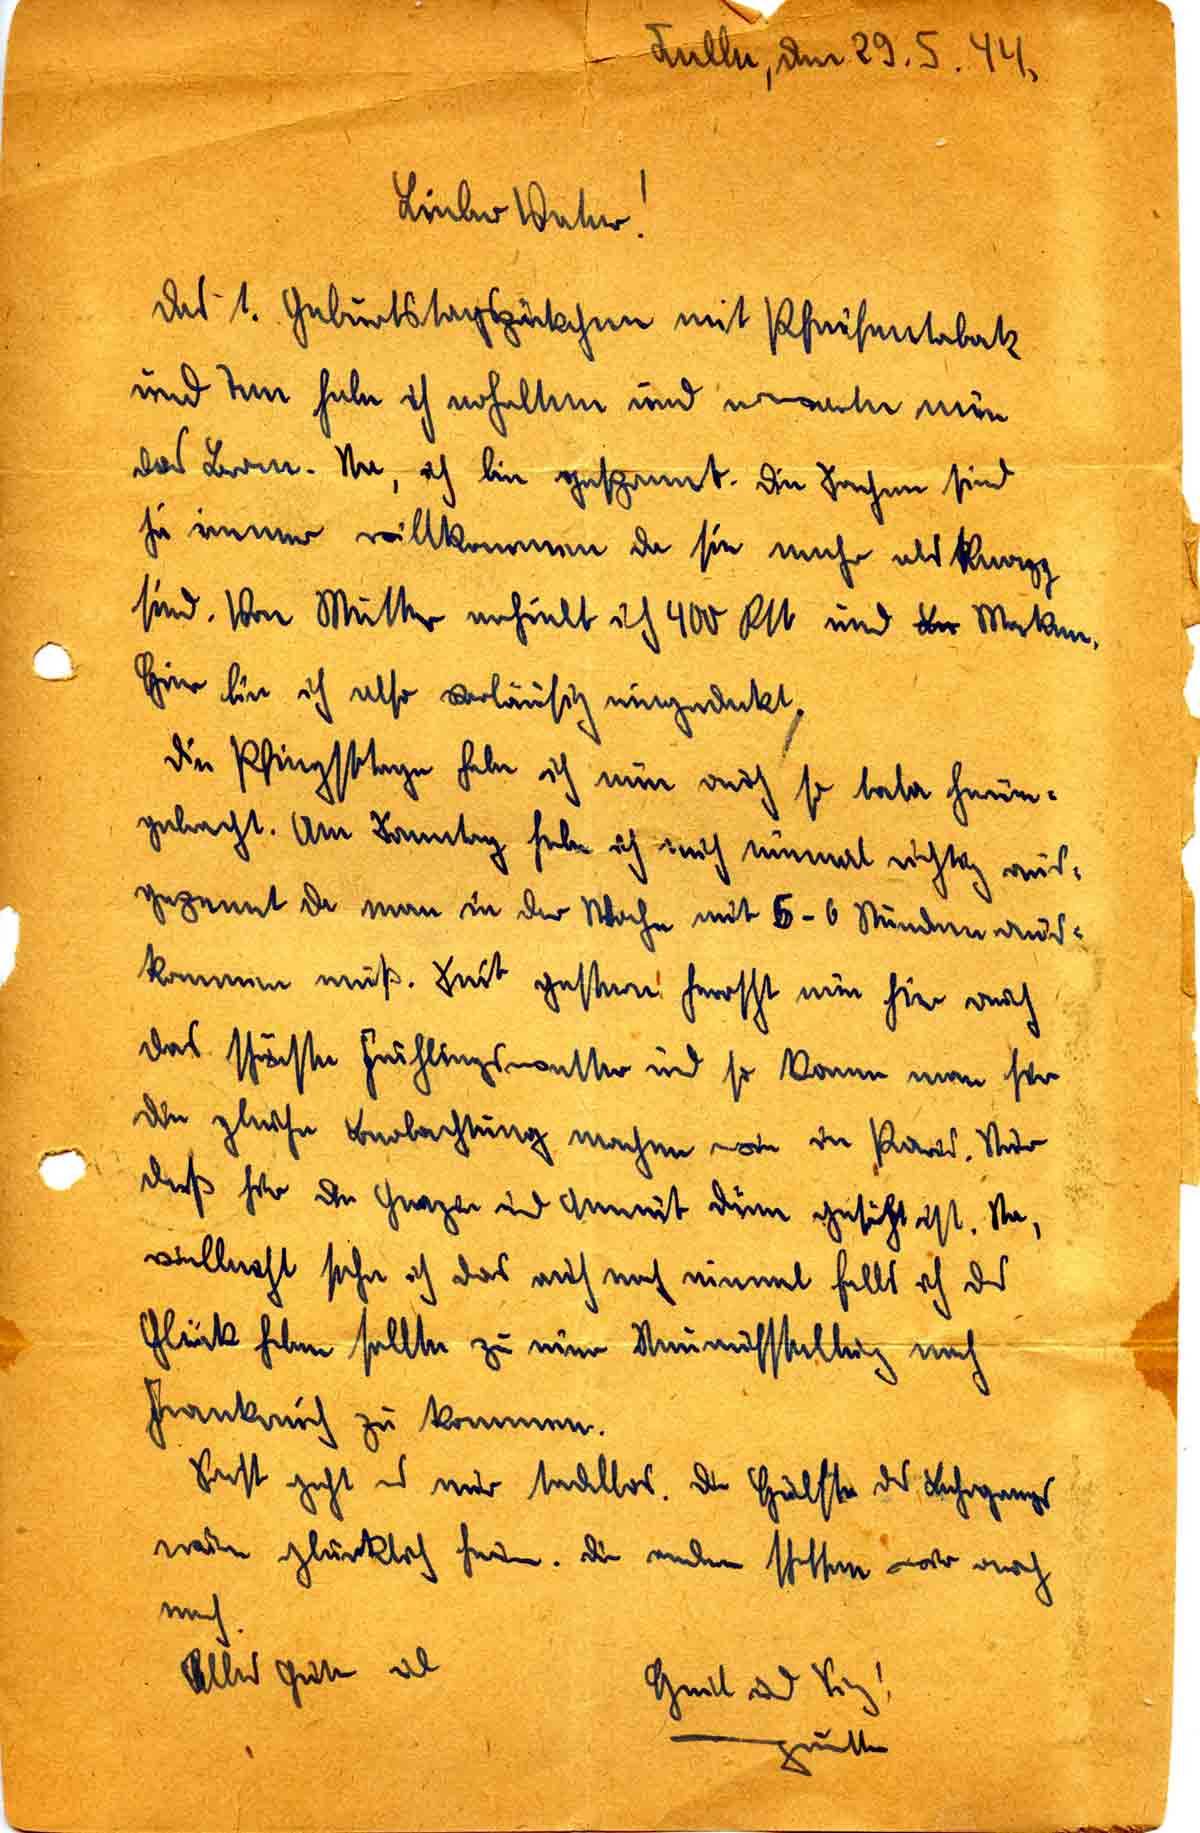 den 29.5.44.
Lieber Vater!
Das 1. Geburtstagspäckchen mit Pfeifentabak
und Tee habe ich erhalten und erwarte nun
das Na, ich bin gespannt. Die Sachen sind
ja immer willkommen da sie mehr als knapp
sind. Von Mutter erhielt ich 400 und Marken.
Hier bin ich also vorläufig eingedeckt.
Die Pfingsttage habe ich nun auch so herum-
gebracht. Am Sonntag habe ich mich einmal richtig aus-
gepennt da man in der Woche mit 5-6 Stunden aus-
kommen muß. Seit gestern herrscht nun hier auch
das schönste Frühlingswetter und so kann man hier
die gleiche Beobachtung machen wie in Paris. Nur
daß hier die Grazie und Anmut dünn gesät ist. Na,
vielleicht sehe ich das auch noch einmal falls ich das
Glück haben sollte zu einer Neuaufstellung nach
Frankreich zu kommen.
Sonst geht es mir tadellos. Die Hälfte des Lehrgangs
wäre glücklich herum. Die andere schaffen wir auch
noch.
Alles Gute und Heil und Sieg!